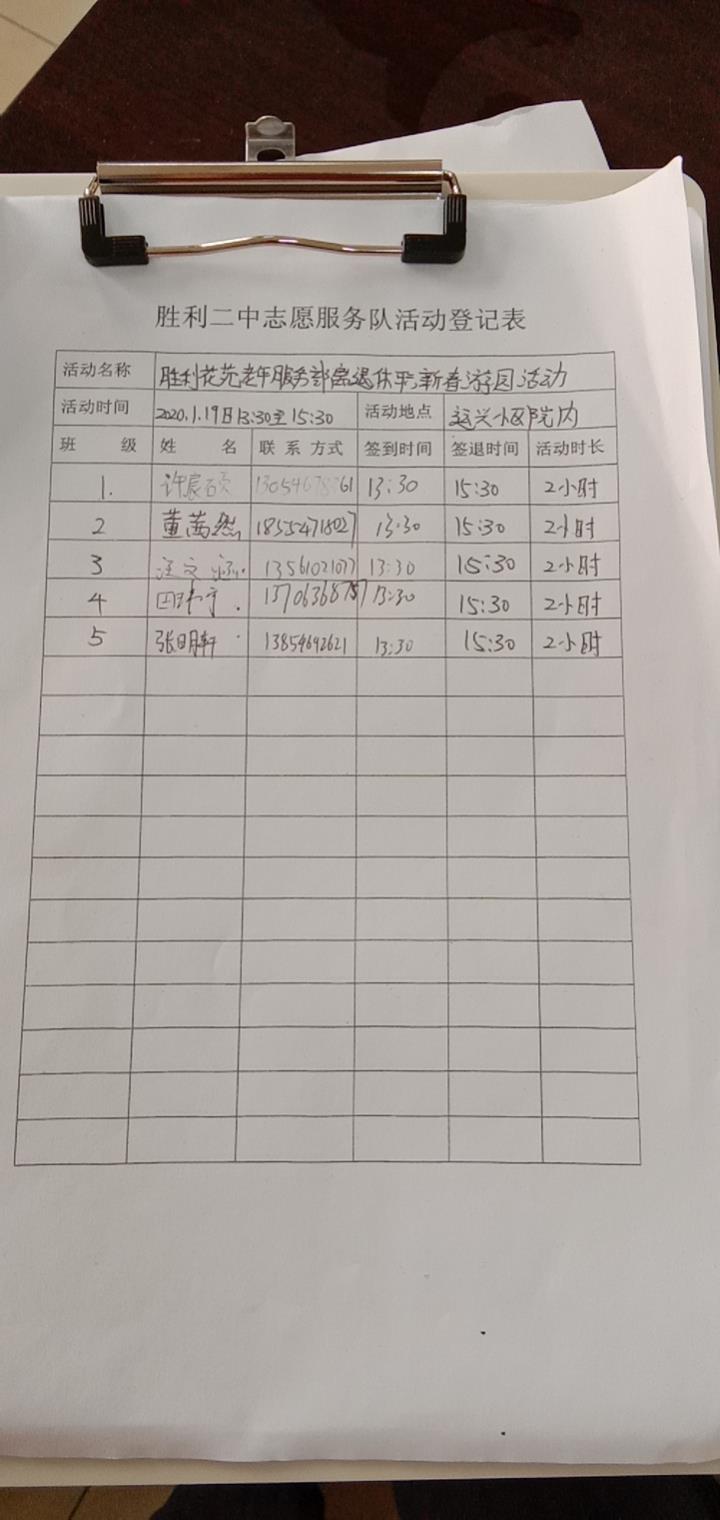 胜利二中志愿服务队活动登记表
活动名称 胜利花苑老年服务部离退休 新春游园活动
活动时间 2020.1.19日13:30至15:30 活动地点 运兴小区院内
班 级 姓 名 联系方式 签到时间 签退时间 活动时长
1. 许宸硕 13:30 15:30 2小时
2 董茜然 18554718027 13:30 15:30 2小时
3 汪文涵 13561021077 13:30 15:30 2小时
4 13706368757 13:30 15:30 2小时
5 张明轩 13854692621 13:30 15:30 2小时